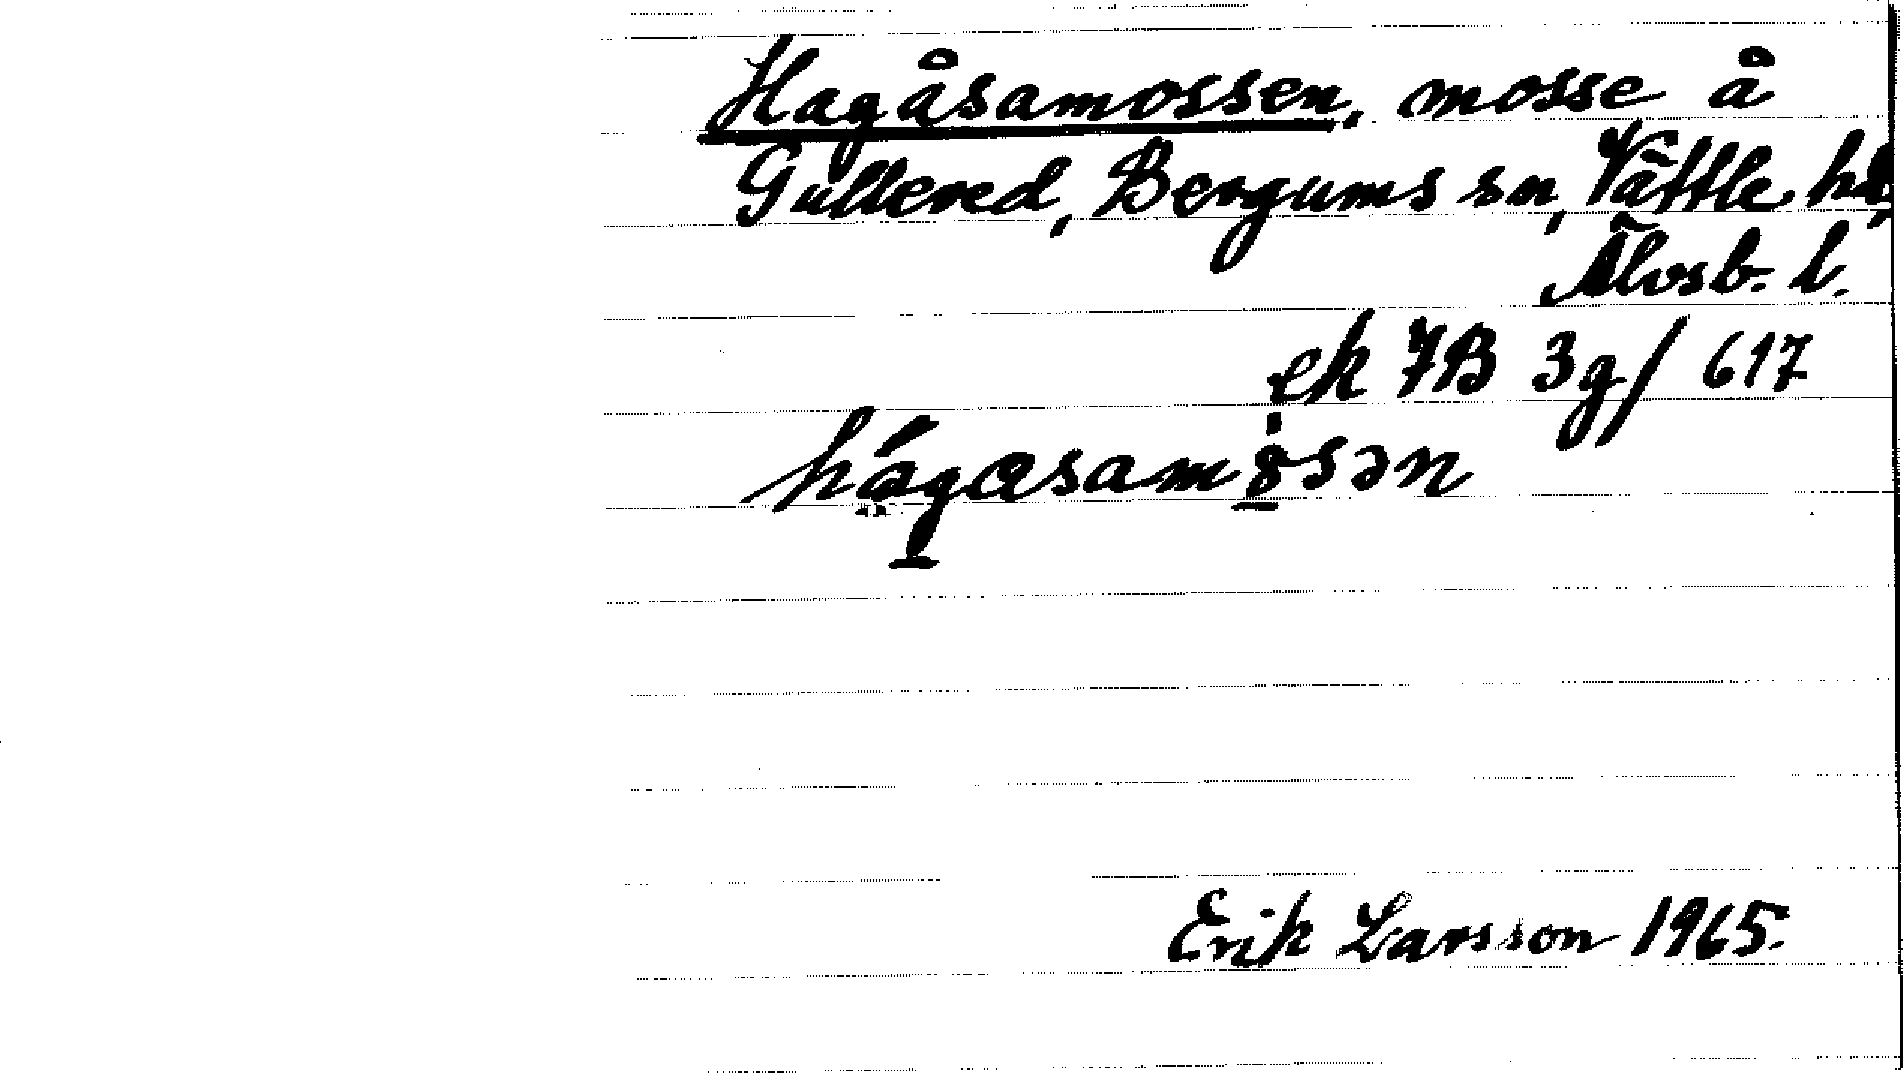 Hagåsamossen, mosse å
Gullered, Bergums sn, Vättle hd,
Älvsb. l.
ek 7B 3g/617
hágasamȯsən
Erik Larsson 1965.